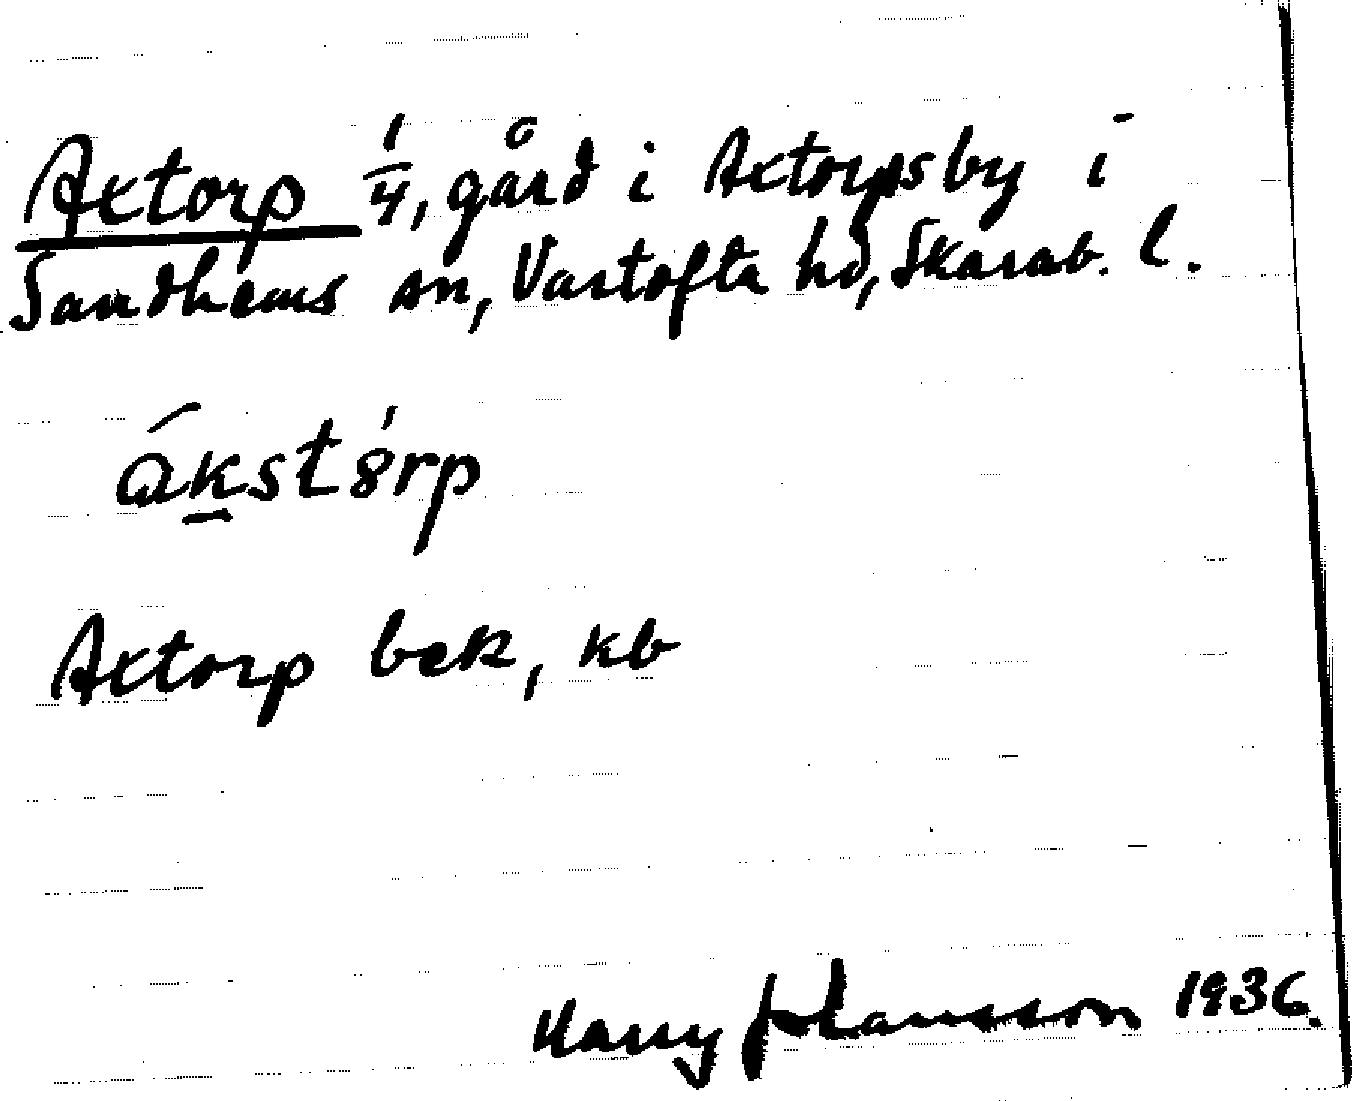 Axtorp 1/4, gård i Axtorpsby i
Sandhems sn, Vartofta hd, Skarab. l.
ákstórp
Axtorp bek, kb
Harry Johansson 1936.